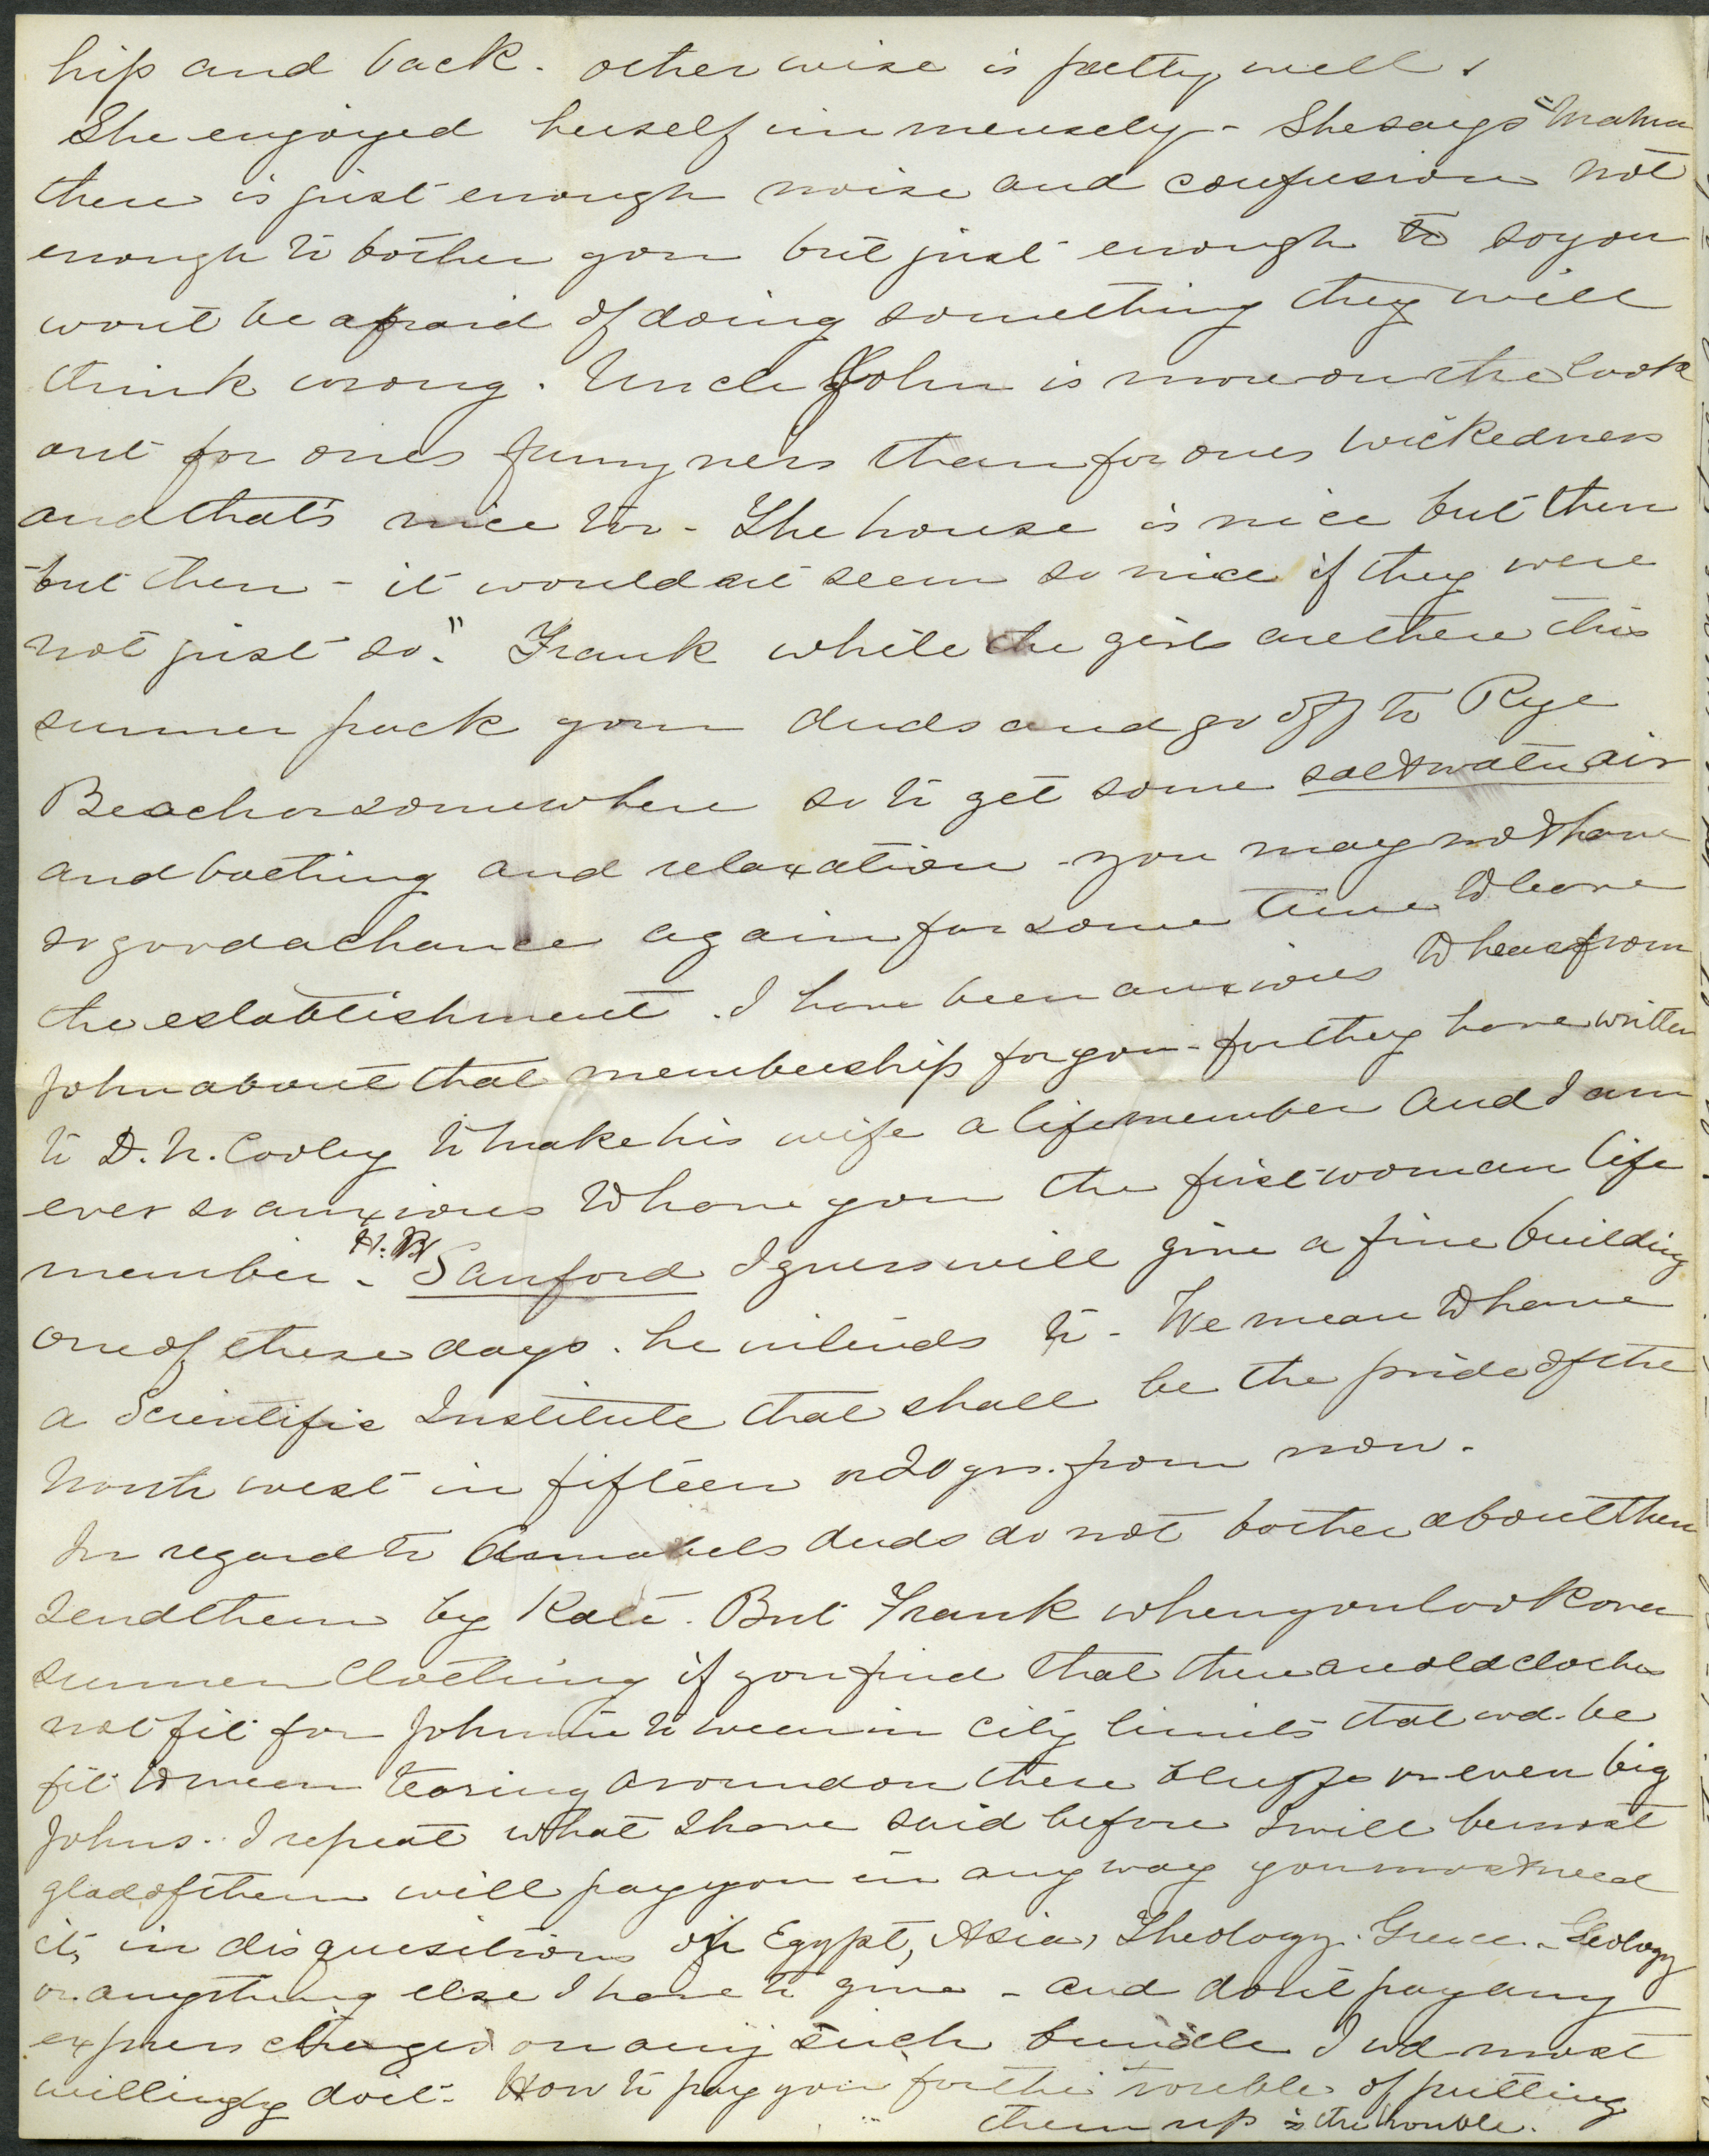 hip and back. otherwise is pretty well.
She enjoyed herself immensely - She says "Mama
there is just enough noise and confusion not
enough to bother you but just enough to so you
wont be afraid of doing something they will
think wrong. Uncle John is more on the look
out for ones funnyness than for ones wickedness
and thats nice too - The house is nice but then
but then - it would not seem so nice if they were
not just so." Frank while the girls are there this
summer pack your duds and go off to Rye
Beach or somewhere so to get some salt water air
and bathing and relaxation - you may not have
so good a chance again for some time to leave
the establishment. I have been anxious to hear from
John about that membership for you - for they have written
to D. N. Cooley to make his wife a life member and I am
ever so anxious to have you the first woman life
member - H. B. Sanford I guess will give a fine building
one of these days. he intends to - We mean to have
a Scientific Institute that shall be the pride of the
North west in fifteen or 20 yrs. from now.
In regard to Annabels duds do not bother about them
send them by Kate. But Frank when you look over
summer clothing if you find that there are old clothes
not fit for Johnnie to wear in city limits that wd. be
fit to wear tearing around on these bluffs or even big
Johns. I repeat what I have said before I will be most
glad of them will pay you in any way you most need
it, in disquisitions on Egypt, Asia, Theology. Greece. - Geology
or anything else I have to give - and dont pay any
express charges on any such bundle I wd most
willingly do it - How to pay you for the trouble of putting
them up is the trouble.